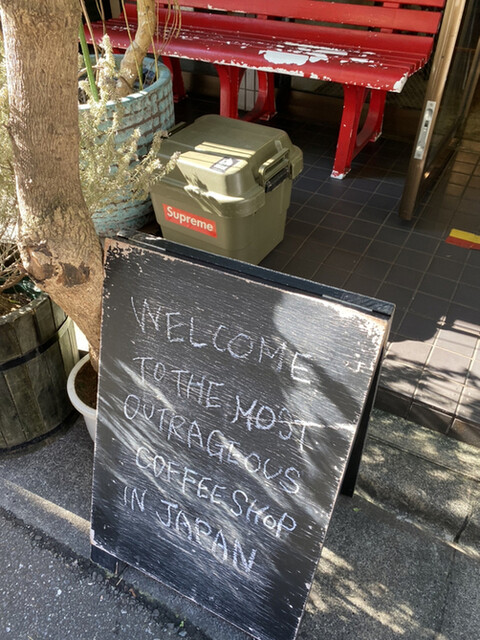 Supreme
WELCOME
TO THE MOST
OUTRAGEOUS
COFFEE SHOP
IN JAPAN